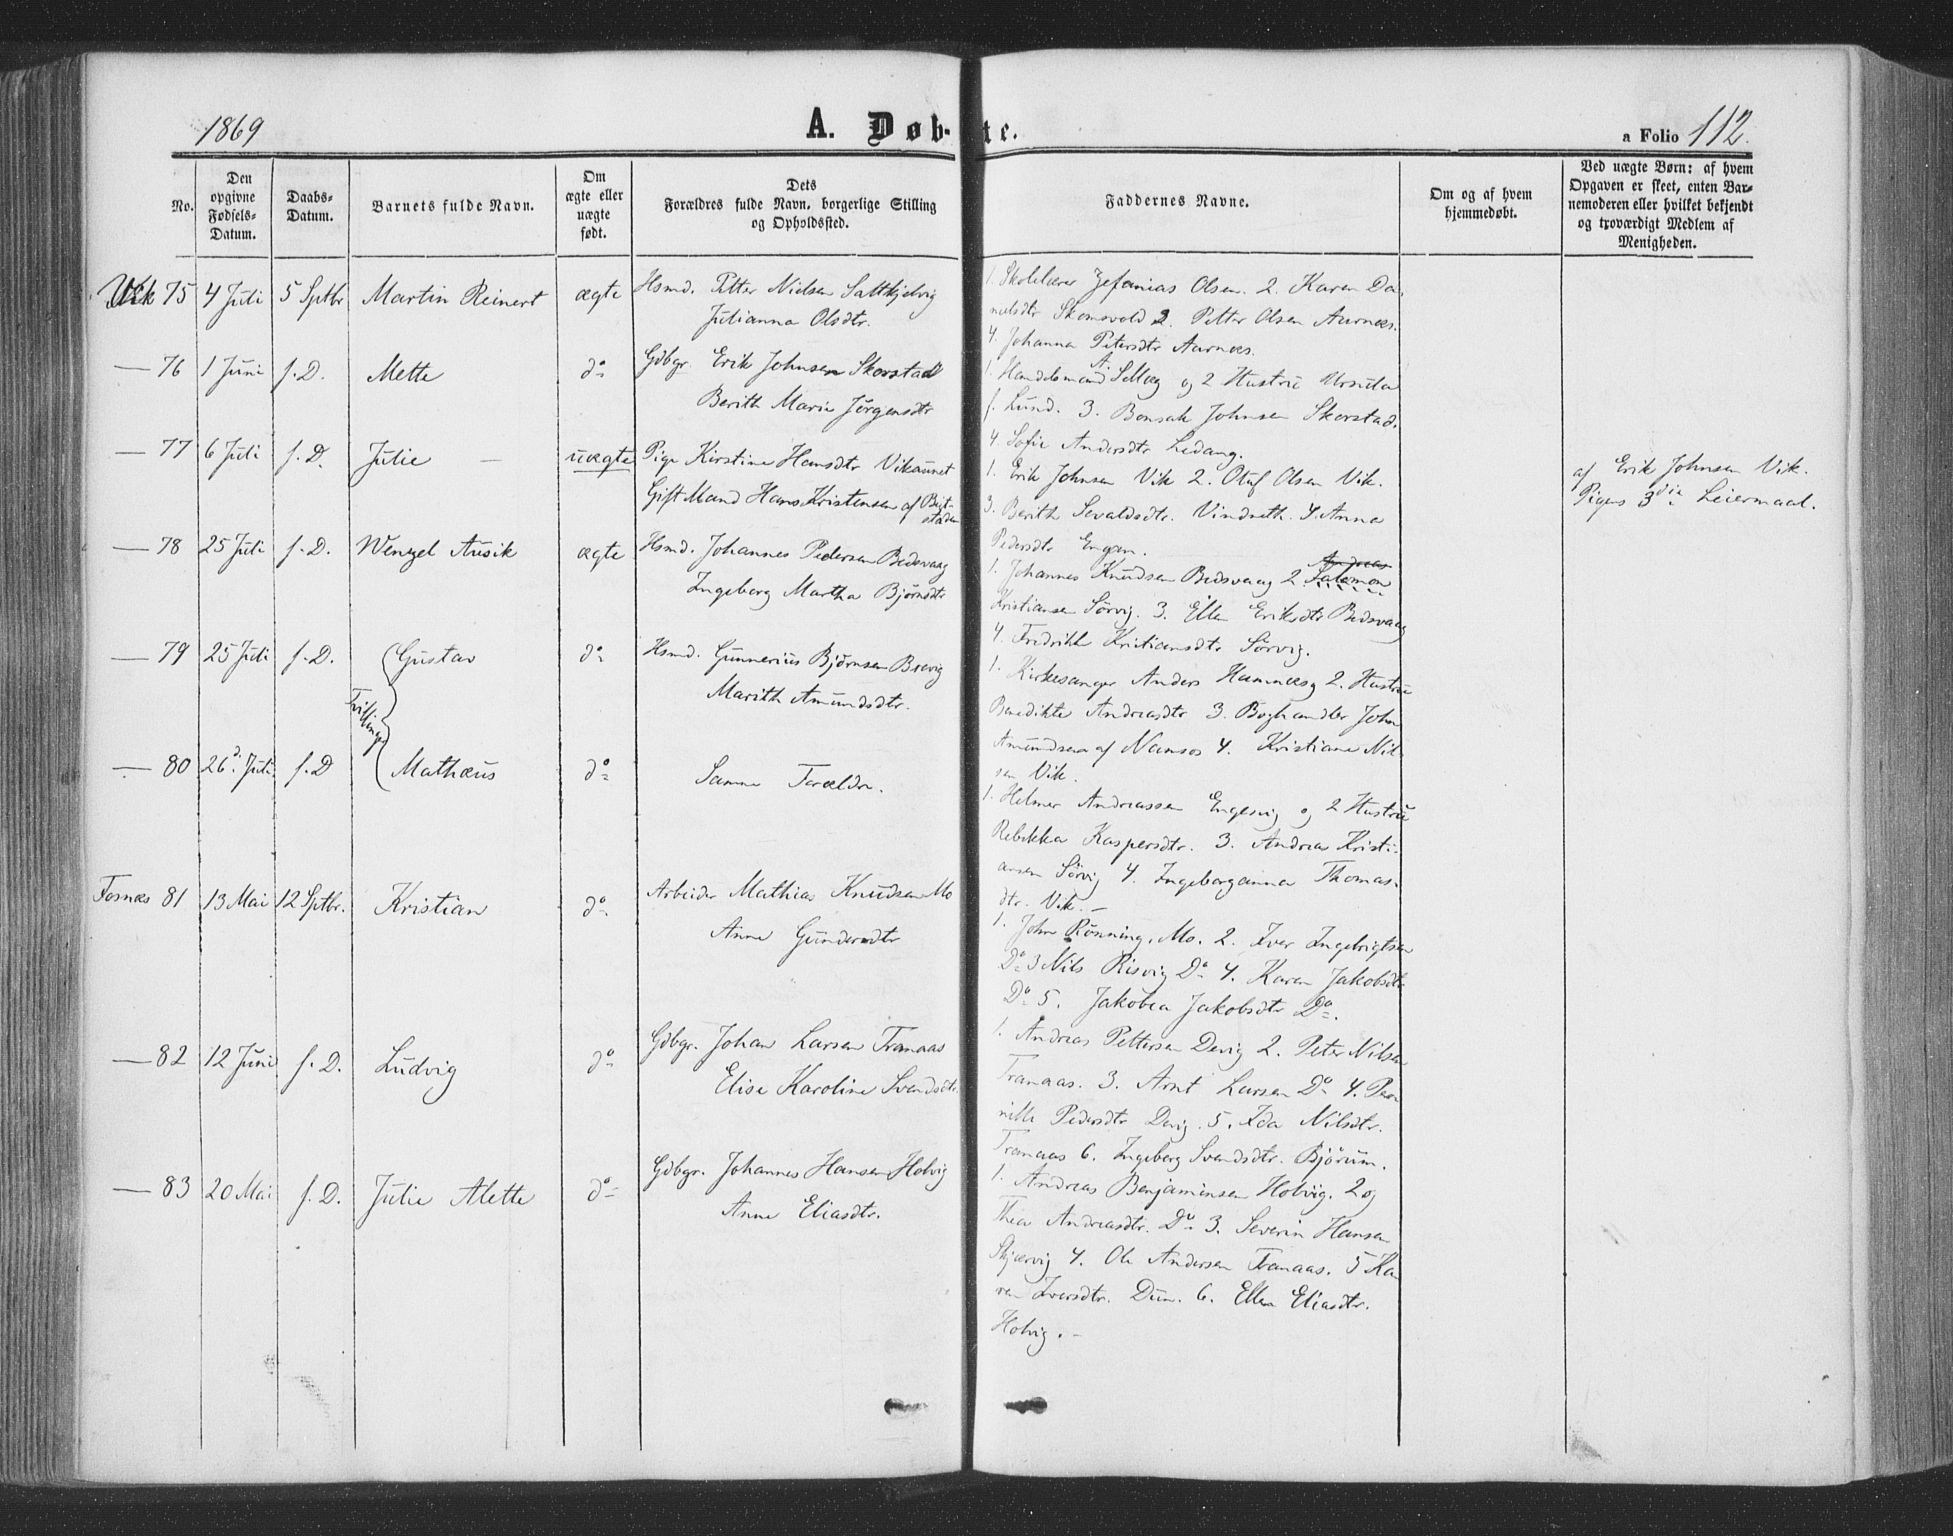 1869
A. Døbte.
a Folio 112.
No.
Den opgivne Fødsels-Datum.
Daabs-Datum.
Barnets fulde Navn.
Om ægte eller uægte født.
Dets Forældres fulde Navn, borgerlige Stilling og Opholdssted.
Faddernes Navne.
Om og af hvem hjemmedøbt.
Ved uægte Børn: af hvem Opgaven er skeet, enten Barnemoderen eller hvilket bekjendt og troværdigt Medlem af Menigheden.
Vik 75 4 Juli 5 Sptbr Martin Reinert ægte Hsmd. Petter Nielsen Saltkjelvig
Julianna Olsdtr.
1. Skolelærer Zefanias Olsen. 2. Karen Da-
nielsdtr Skomsvold 3. Petter Olsen Aarnes.
4. Johanna Petersdtr Aarnes.
— 76 1 Juni s. D. Mette do Gdbgr. Erik Johnsen Skorstad
Berith Marie Jørgensdtr
1. Handelsmand A. Sellæg og 2 Hustru Ursula
f. Lund. 3. Bonsak Johnsen Skorstad.
4 Sofie Andersdtr Ledang.
— 77 6 Juli s. D. Julie — uægte Pige Kirstine Hansdtr Vikaunet
Gift Mand Hans Kristensen af Beit-
staden
1. Erik Johnsen Vik 2. Oluf Olsen Vik.
3. Berith Sevaldsdtr. Vindseth. 4. Anna
Pedersdtr Engen.
af Erik Johnsen Vik.
Pigens 3die Leiermaal.
— 78 25 Juli s. D. Wenzel Ausik ægte Hsmd. Johannes Pedersen Bedsvaag
Ingeborg Martha Bjørnsdtr
1. Johannes Knudsen Bedsvaag 2 Andreas Salamon
Kristiansen Sørvig. 3. Ellen Eriksdtr Bedsvaag
4. Fredrikke Kristiansdtr Sørvig.
— 79 25 Juli s. D. Gustav do Hsmd. Gunnerius Bjørnsen Brevig
Marith Amundsdtr.
Tvillinger
1. Kirkesanger Anders Hamnes og 2. Hustru
Benedikte Andreasdtr 3. Boghandler John
Amundsen af Namsos 4. Kristiane Nil-
sen Vik.
— 80 26d. Juli s. D Mathæus do Samme Forældre.
1. Helmer Andreassen Engesvig og 2 Hustru
Rebekka Kaspersdtr. 3. Andreas Kristi-
ansen Sørvig 4. Ingeborganna Thomas-
dtr. Vik. —
Fosnes 81 13 Mai 12 Sptbr. Kristian do Arbeider Mathias Knudsen Mo
Anne Gundersdtr
1. John Rønning, Mo. 2. Iver Ingebrigtsen
Do 3 Nils Risvig Do 4. Karen Jakobsdtr
Do 5. Jakobea Jakobsdtr Do.
— 82 12 Juni s. D. Ludvig do Gdbgr. Johan Larsen Tranaas
Elise Karoline Svendsdtr.
1. Andreas Pettersen Devig 2. Peter Nilsen
Tranaas. 3. Arnt Larsen Do 4. Per-
nille Pedersdtr Devig. 5. Ida Nilsdtr.
Tranaas 6. Ingeborg Svendsdtr. Bjørum.
— 83 20 Mai s. D. Julie Alette do Gdbgr. Johannes Hansen Holvig
Anne Eliasdtr.
1. Andreas Benjaminsen Holvig. 2 og
Thea Andreasdtr. Do 3. Severin Hansen
Skjærvig 4. Ole Andersen Tranaas. 5 Ka-
ren Iversdtr. Dun. 6. Ellen Eliasdtr.
Holvig. —